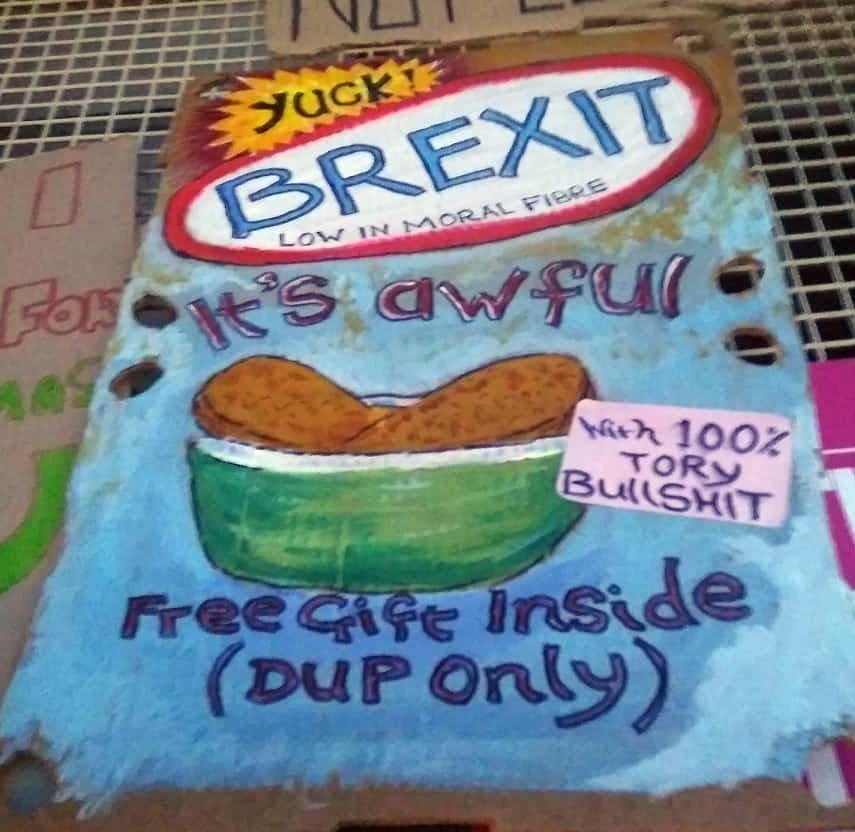 YUCK!
BREXIT
LOW IN MORAL FIBRE
It's awful
With 100%
TORY
BullSHIT
Free Gift Inside
(DUP Only)